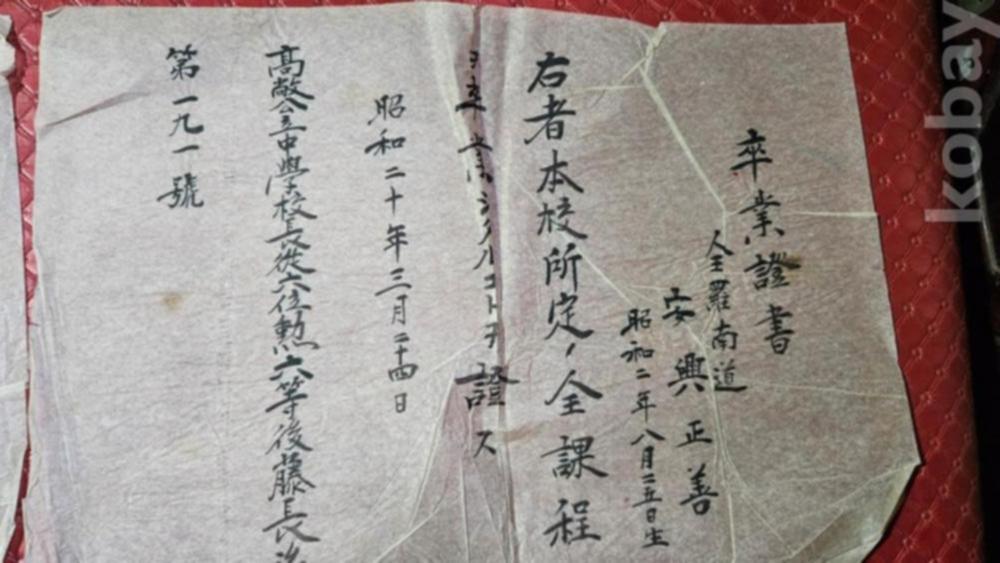 卒業證書
全羅南道
安興正善
昭和二年八月二五日生
右者本校所定ノ全課程
ヲ卒業シタルコトヲ證ス
昭和二十年三月二十四日
高敞公立中學校長從六位勲六等後藤長
第一九一號
kobay